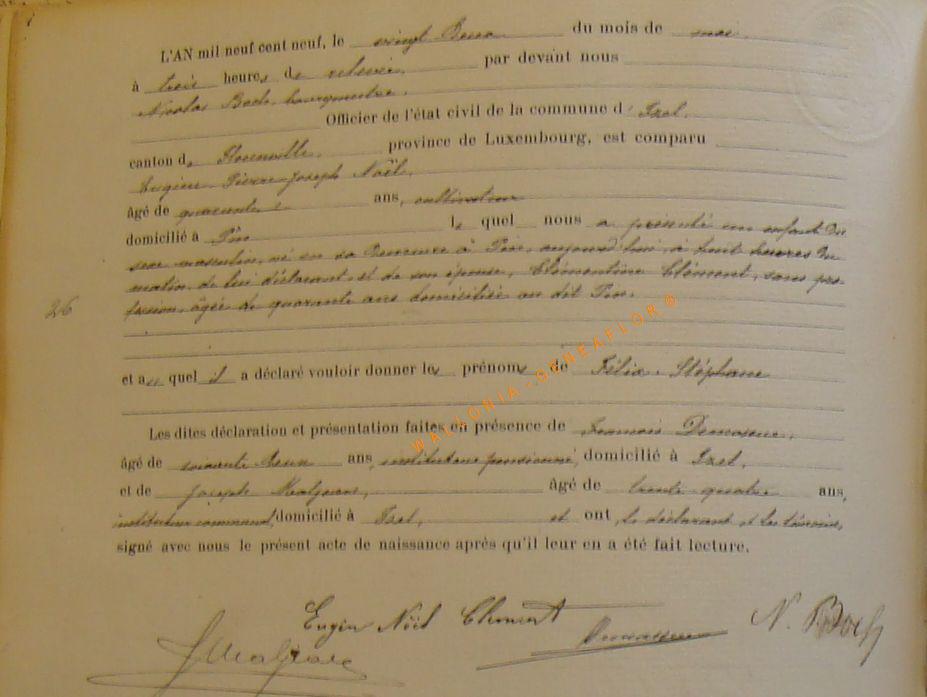 L'AN mil neuf cent neuf, le vingt-Deux du mois de mai
à trois heures de relevée, par devant nous
Nicolas Boch, bourgmestre,
Officier de l'état civil de la commune d'Izel,
canton de Florenville, province de Luxembourg, est comparu
Eugène-Pierre-Joseph Noël,
âgé de quarante ans, cultivateur
domicilié à Pin lequel nous a présenté un enfant du
sexe masculin, né en sa Demeure à Pin, aujourd'hui, à huit heures du
matin, de lui déclarant, et de son épouse, Clémentine Clément, sans pro-
fession, âgée de quarante ans domiciliée au dit Pin.
26
et auquel il a déclaré vouloir donner les prénoms de Félix, Stéphane
WALLONIA-GENEAFLOR®
Les dites déclaration et présentation faites en présence de
âgé de soixante Deux ans, instituteur pensionné, domicilié à Izel,
et de Joseph âgé de trente-quatre ans,
instituteur communal, domicilié à Izel, et ont, le déclarant et les témoins,
signé avec nous le présent acte de naissance après qu'il leur en a été fait lecture.
Eugène Noël Clément
N. Boch